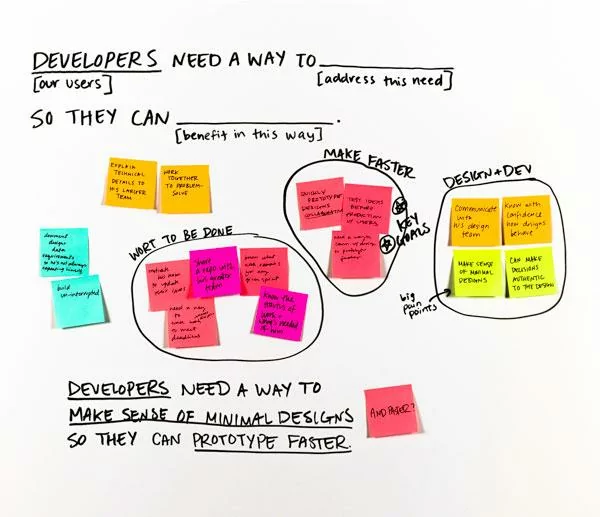 DEVELOPERS NEED A WAY TO
[our users]
[address this need]
SO THEY CAN .
[benefit in this way]
EXPLAIN
TECHNICAL
DETAILS TO
HIS LARGER
TEAM
WORK
TOGETHER
TO PROBLEM-
SOLVE
MAKE FASTER
QUICKLY
PROTOTYPE
DESIGNS
TEST IDEAS
BEFORE
PRODUCTION
W/ USERS
KEY
GOALS
DESIGN + DEV
Communicate
with
his design
team
Know with
confidence
how designs
behave
MAKE SENSE
OF MINIMAL
DESIGNS
CAN MAKE
DECISIONS
AUTHENTIC
TO THE DESIGN
big
pain
points
document
design
data
requirements
so he's not always
repeating himself
build
un-interrupted
WORT TO BE DONE
to update
Share
a repo with
his greater
team
need a way
to
to meet
deadlines
Know the
status of
work +
what's needed
of him
DEVELOPERS NEED A WAY TO
MAKE SENSE OF MINIMAL DESIGNS
SO THEY CAN PROTOTYPE FASTER.
AND FASTER?